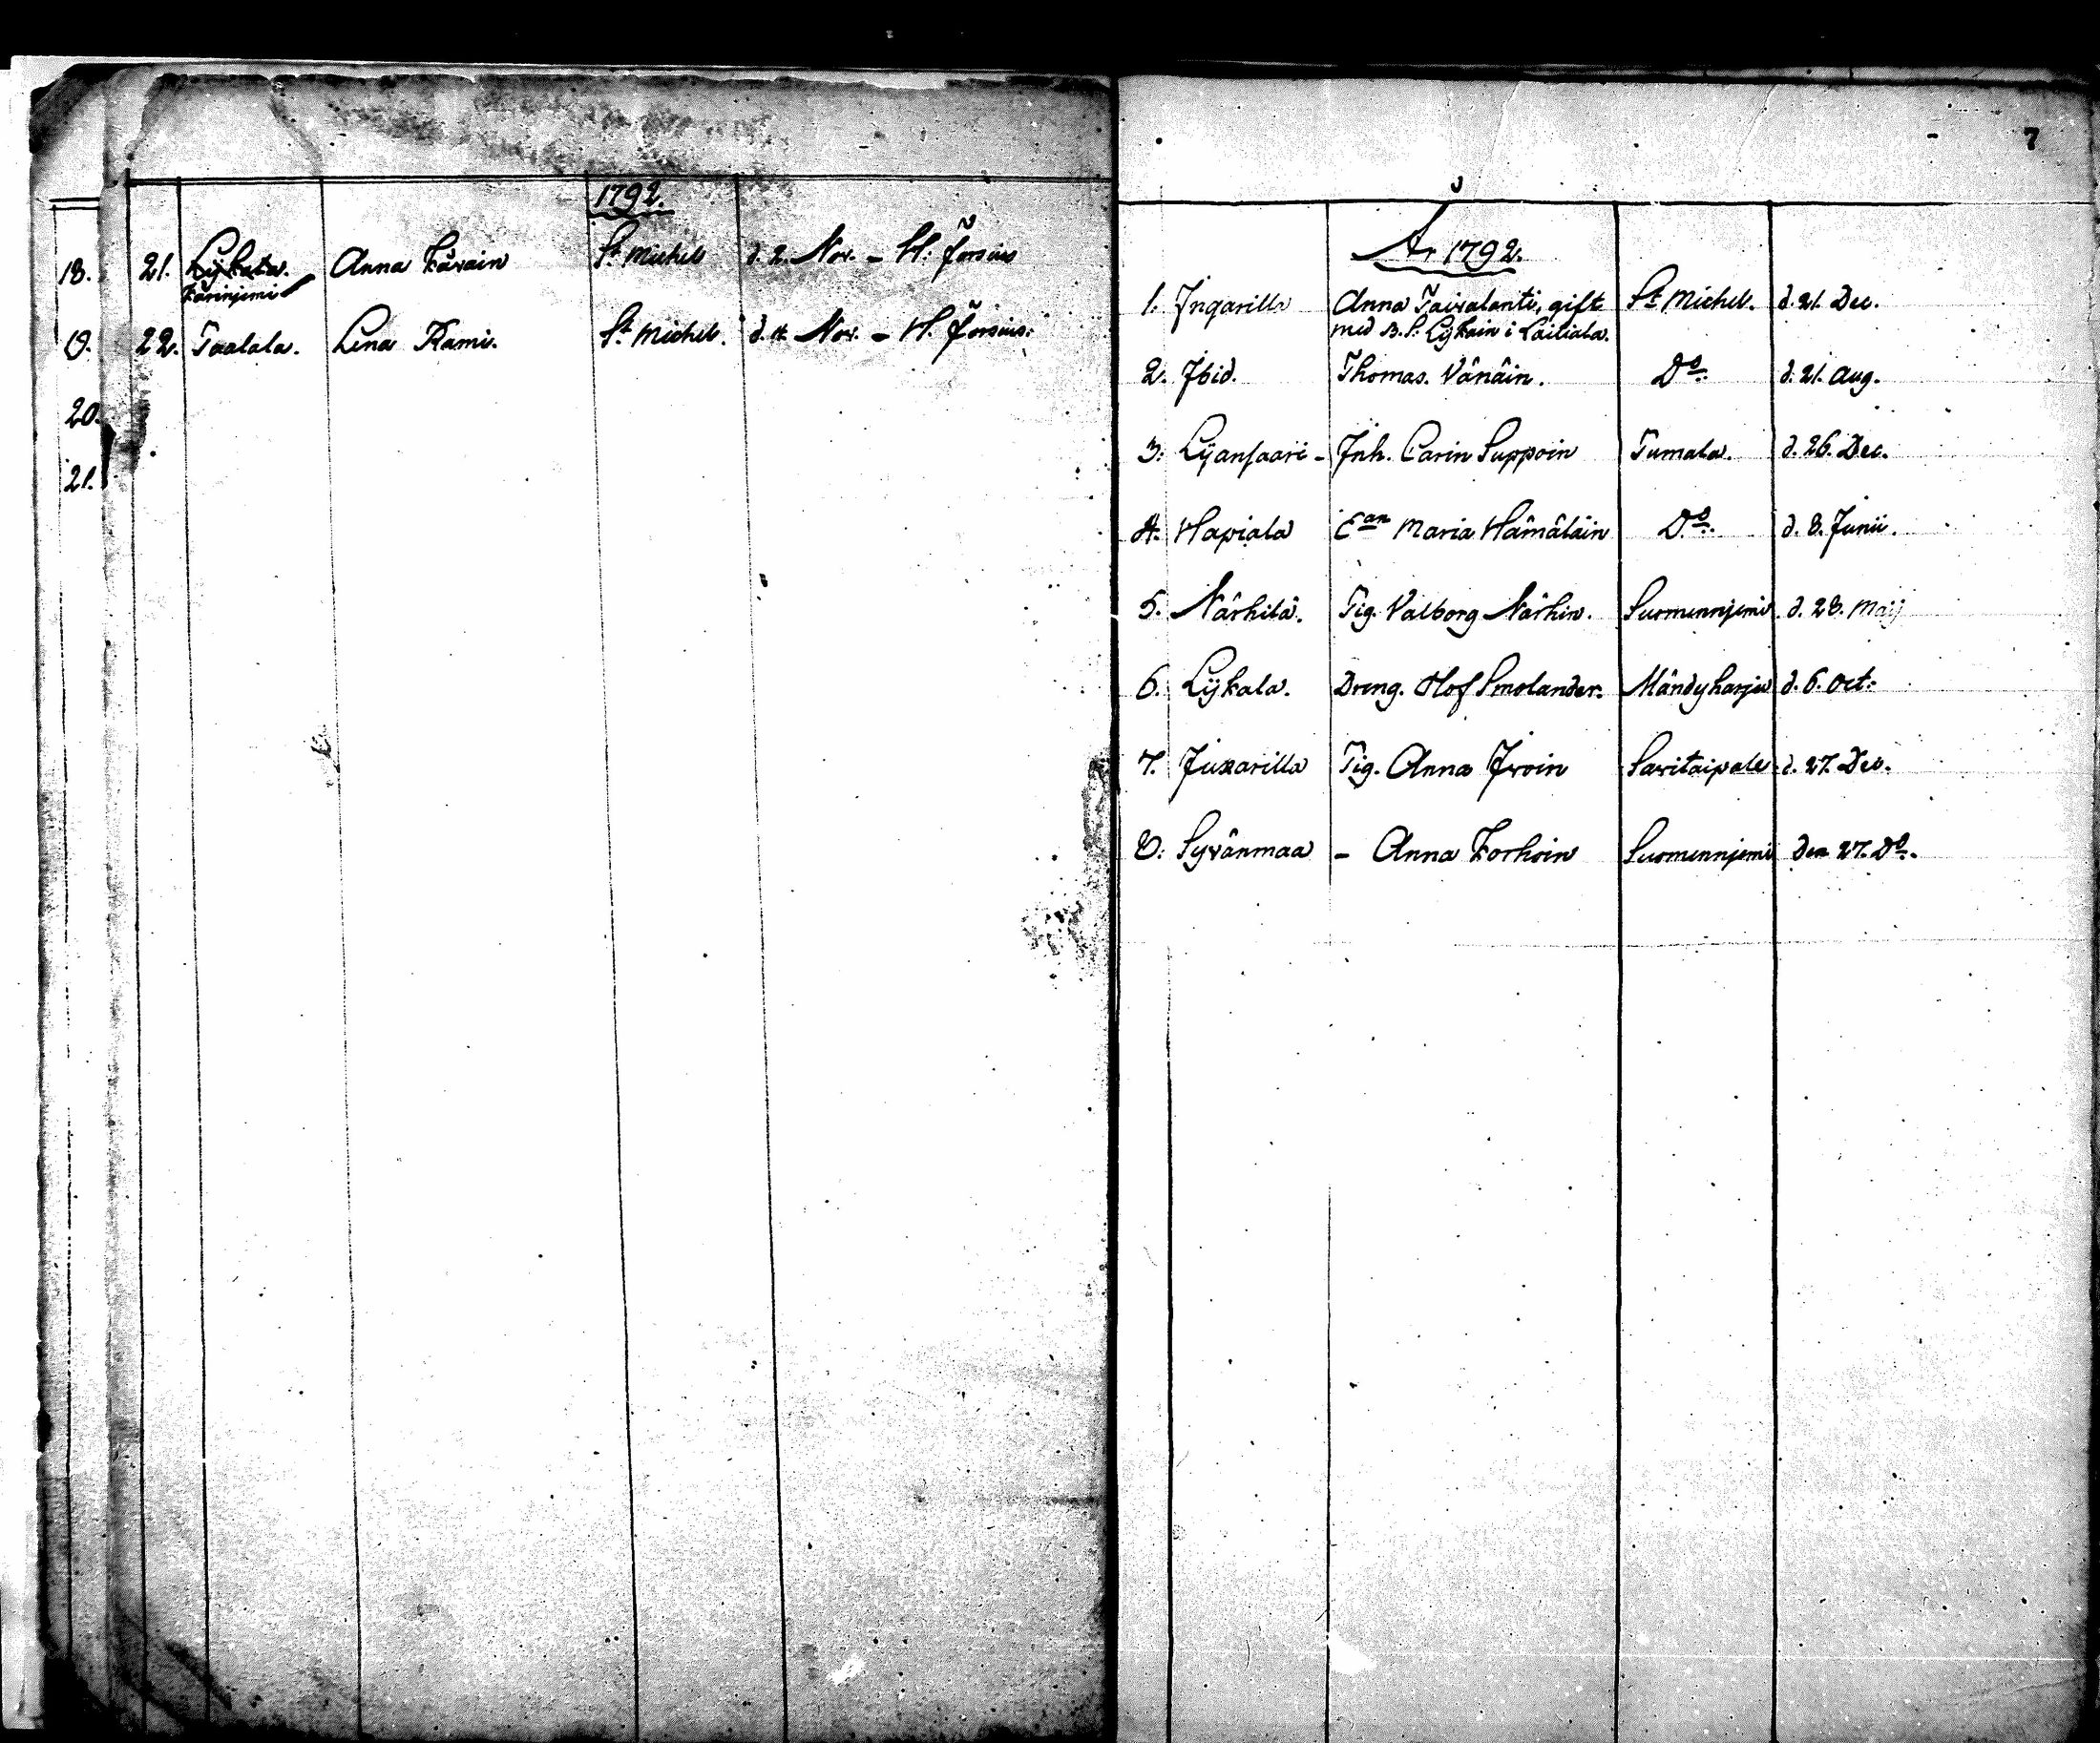 1792.
18. 21. Lÿkala. Anna Kåvain St Michels d. 2. Nov. - H: Forsius
Karinjemi
19. 22. Taalala. Lena Rami. St Michels. d. 4. Nov. - H. Forsius:
20.
21.
7
Ar 1792.
1. Ingarilla Anna Taivalanti, gift St Michels. d. 21. Dec.
med B. S. Lÿkain i Lailiala.
2. Ibid. Thomas. Vänäin. Do d. 21. Aug.
3: Lÿansaari - Inh. Carin Suppoin Jumala. d. 26. Dec.
4. Hapiala Ean Maria Hämäläin Do d. 8. Junii.
5. Närhilä. Pig. Valborg Närhin. Suomennjemi d. 28. Maij
6. Lÿkala. Dreng. Olof Smolander. Mändyharju d. 6. Oct:
7. Juxarilla Pig. Anna Iroin Savitaipale d. 27. Dec.
8: Syvänmaa - Anna Korhoin Suomennjemi den 27. Do.